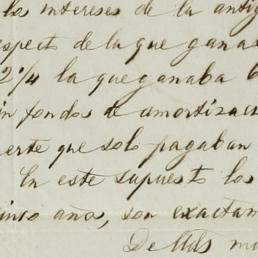 los intereses de la antig
especto de la que gana
2 1/4 la que ganaba 6
in fondos de amortizaci
uerte que solo pagaban
En este supuesto los
cinco años, son exactam
De Vds mu